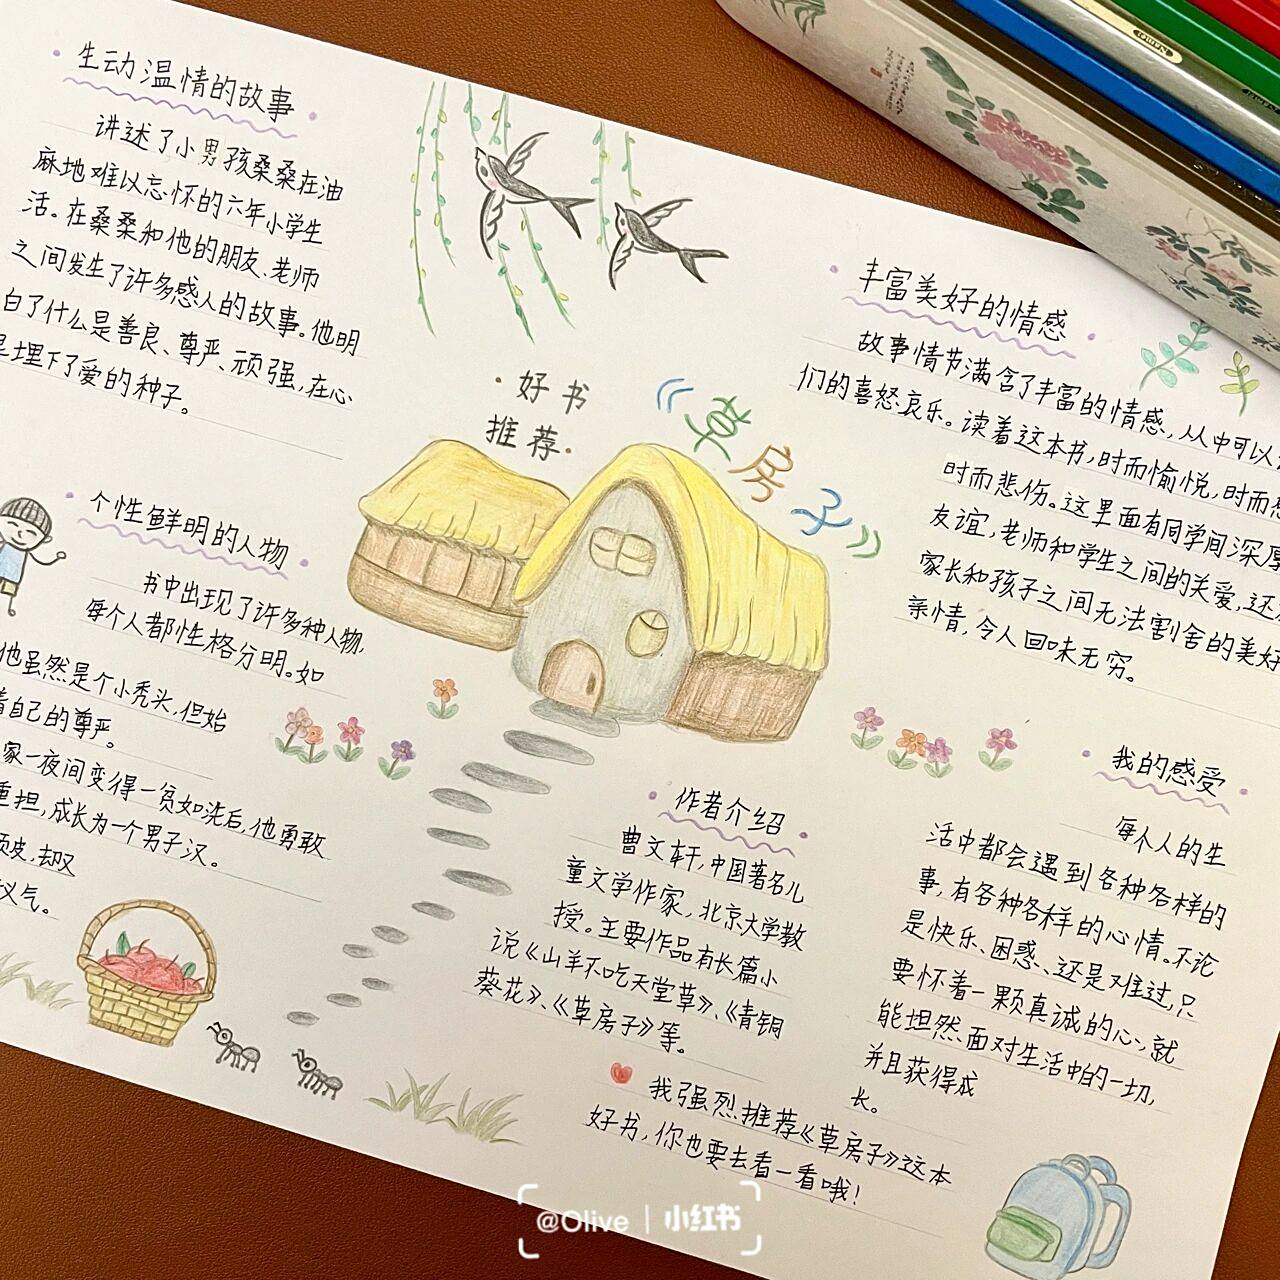 生动温情的故事
讲述了小男孩桑桑在油
麻地难以忘怀的六年小学生
活。在桑桑和他的朋友、老师
之间发生了许多感人的故事。他明
白了什么是善良、尊严、顽强,在心
里埋下了爱的种子。
好书
推荐
《草房子》
丰富美好的情感
故事情节满含了丰富的情感,从中可以
们的喜怒哀乐。读着这本书,时而愉悦,时而
时而悲伤。这里面有同学间深厚
友谊,老师和学生之间的关爱,还
家长和孩子之间无法割舍的美好
亲情,令人回味无穷。
个性鲜明的人物
书中出现了许多种人物,
每个人都性格分明。如
他虽然是个小秃头,但始
着自己的尊严。
家一夜间变得一贫如洗后,他勇敢
重担,成长为一个男子汉。
皮,却又
义气。
作者介绍
曹文轩,中国著名儿
童文学作家,北京大学教
授。主要作品有长篇小
说《山羊不吃天堂草》、《青铜
葵花》、《草房子》等。
我的感受
每个人的生
活中都会遇到各种各样的
事,有各种各样的心情。不论
是快乐、困惑、还是难过,只
要怀着一颗真诚的心,就
能坦然面对生活中的一切,
并且获得成
长。
我强烈推荐《草房子》这本
好书,你也要去看一看哦!
@Olive | 小红书